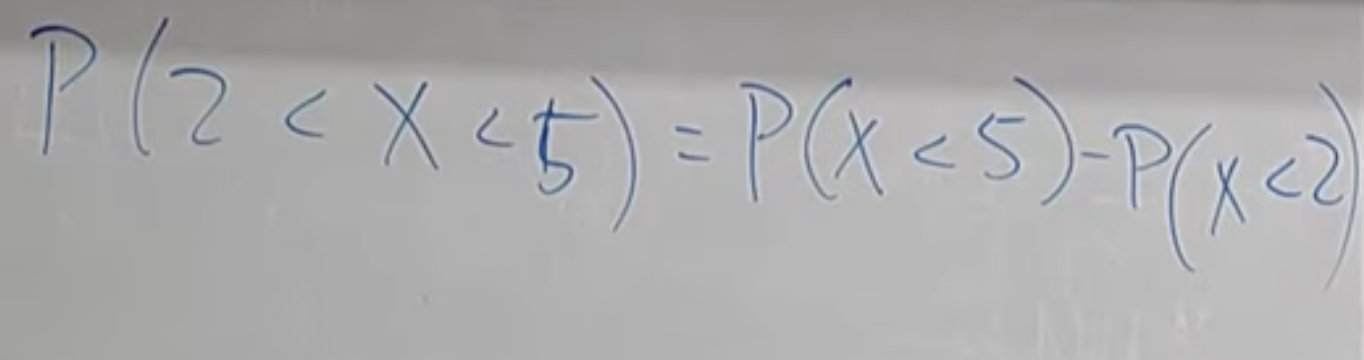 P(2 < X < 5) = P(X < 5) - P(X < 2)